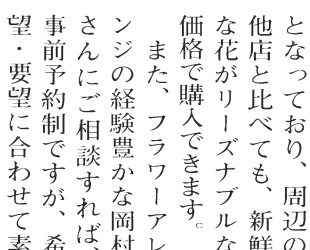 となっており、周辺の
他店と比べても、新鮮
な花がリーズナブルな
価格で購入できます。
また、フラワーアレ
ンジの経験豊かな岡村
さんにご相談すれば、
事前予約制ですが、希
望・要望に合わせて素